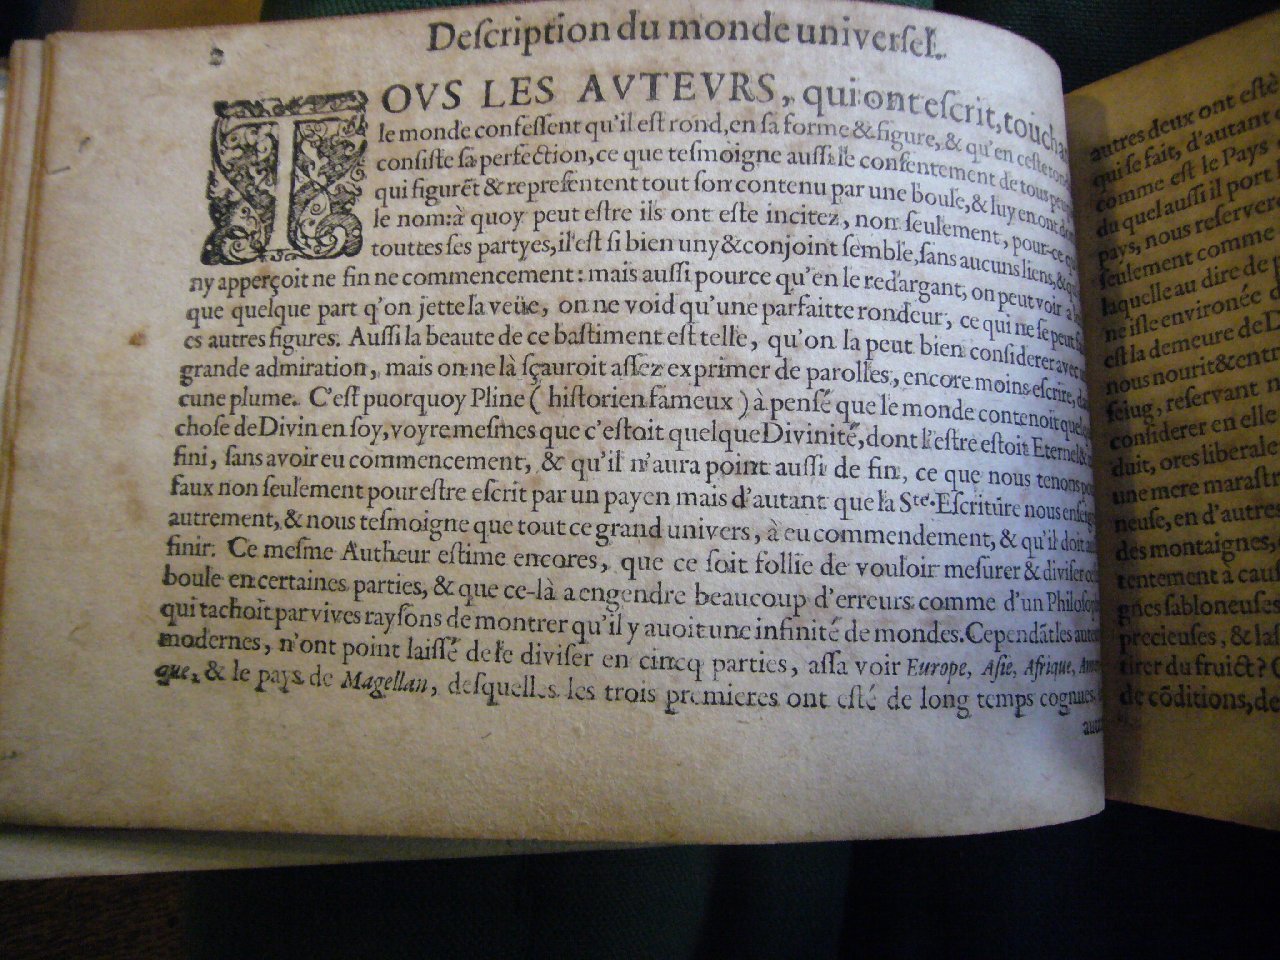 Description du monde universel.
TOVS LES AVTEVRS, qui ont escrit, touchant
le monde confessent qu'il est rond, en sa forme & figure, & qu'en ceste
consiste sa perfection, ce que tesmoigne aussi le consentement de tous
qui figurēt & representent tout son contenu par une boule, & luy en ont
le nom: à quoy peut estre ils ont este incitez, non seulement, pour-ce
touttes ses partyes, il est si bien uny & conjoint semble, sans aucuns liens, &
ny apperçoit ne fin ne commencement: mais aussi pource qu'en le redargant, on peut voir a
que quelque part q'on jette la veüe, on ne void qu'une parfaitte rondeur, ce qui ne se peut
es autres figures. Aussi la beaute de ce bastiment est telle, qu'on la peut bien considerer avec
grande admiration, mais on ne là sçauroit assez exprimer de parolles, encore moins escrire,
cune plume. C'est puorquoy Pline ( historien fameux ) à pensé que le monde contenoit
chose de Divin en soy, voyre mesmes que c'estoit quelque Divinité, dont l'estre estoit Eternel &
fini, sans avoir eu commencement, & qu'il n'aura point aussi de fin, ce que nous tenons
faux non seulement pour estre escrit par un payen mais d'autant que la Ste. Escritùre nous
autrement, & nous tesmoigne que tout ce grand univers, à eu commendement, & qu'il doit
finir. Ce mesme Autheur estime encores, que ce soit follie de vouloir mesurer & diviser
boule en certaines parties, & que ce-là a engendre beaucoup d'erreurs comme d'un
qui tachoit par vives raysons de montrer qu'il y avoit une infinité de mondes. Cependātles
modernes, n'ont point laissé de le diviser en cincq parties, assa voir Europe, Asie, Afrique,
que, & le pays de Magellan, desquelles les trois premieres ont esté de long temps cognues.
autres deux ont estè
qui se fait, d'autant
comme est le Pays
du quel aussi il port
pays, nous reserver
seulement comme
laquelle au dire de
ne isle environée
est la demeure de
nous nourit & entr
reservant
considerer en elle
duit, ores liberale
une mere marastr
neuse, en d'autres
des montaignes,
tentement à cau
gnes sabloneuses
precieuses, & la
tirer du fruict?
de cōditions, de